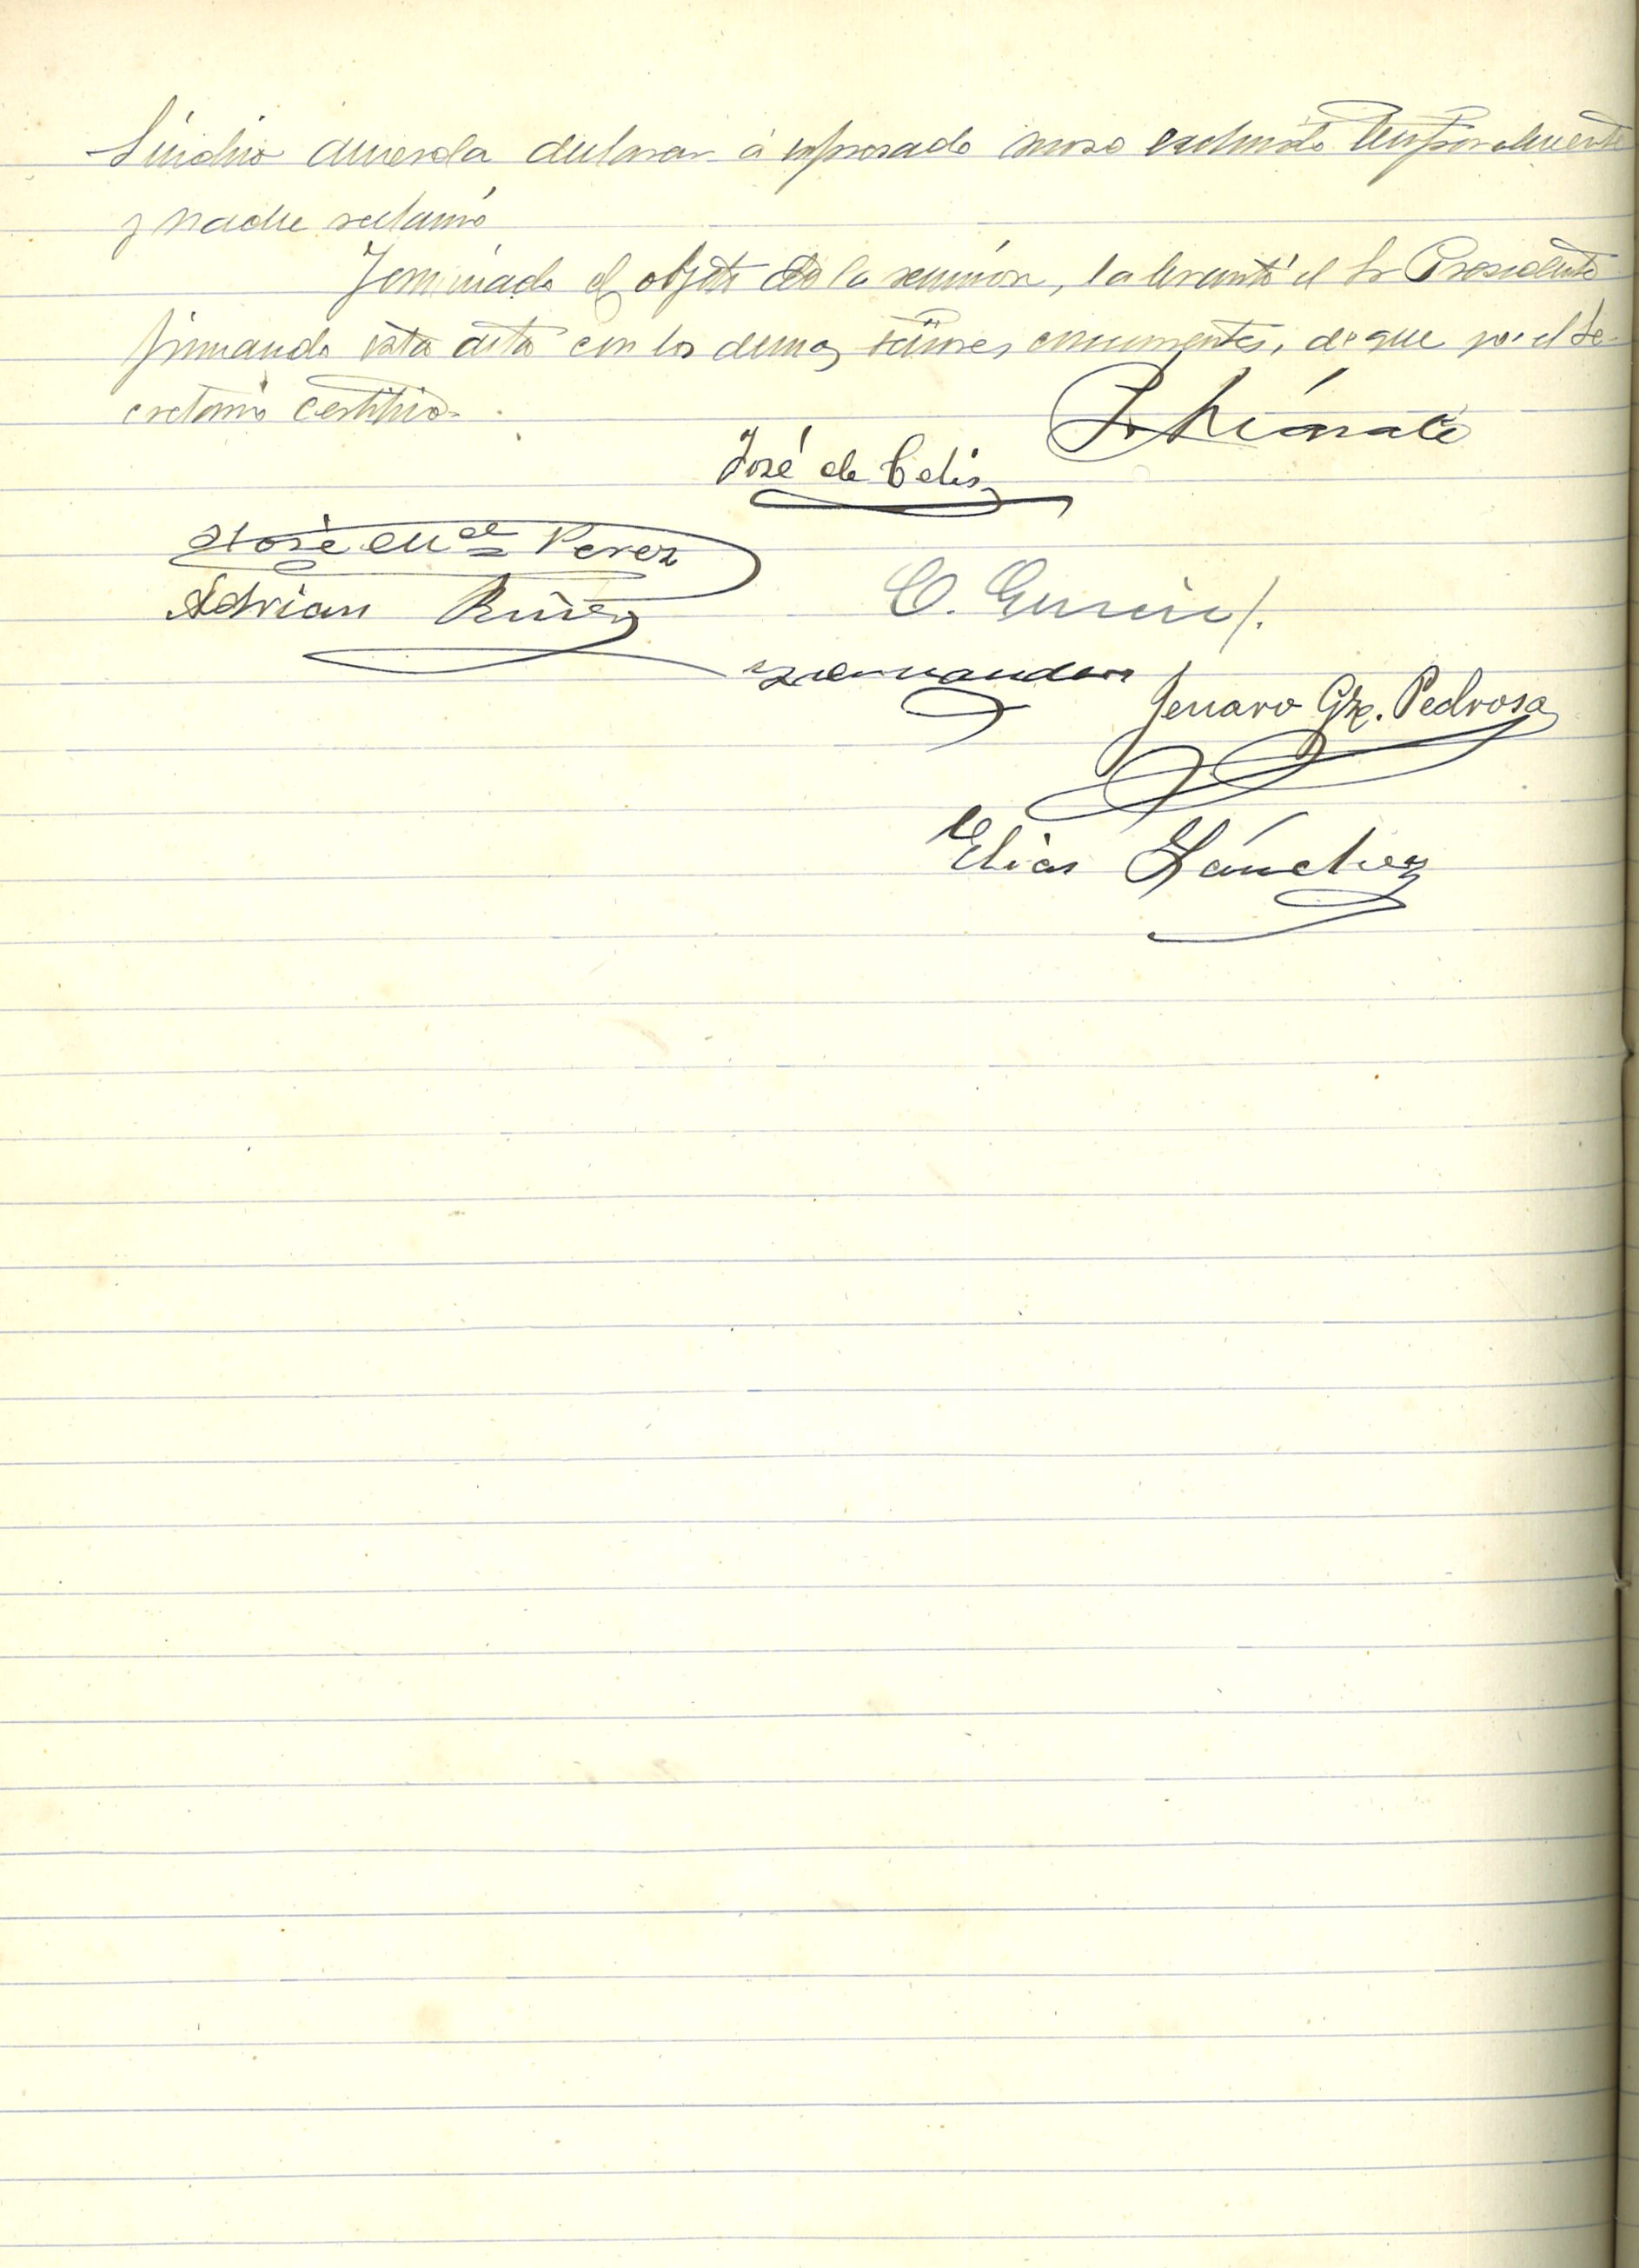 Síndico acuerda declarar á expresado mozo excluido temporalmente
y nadie reclamó
Terminado el objeto de la reunión, la levantó el Sr Presidente
firmando esta acta con los demas señores concurrentes, de que yo el Se-
cretario certifico.
José de Celis
José Mª Perez
Adrian
C. García
Hernandez
Genaro Gz. Pedrosa
Elias Sánchez